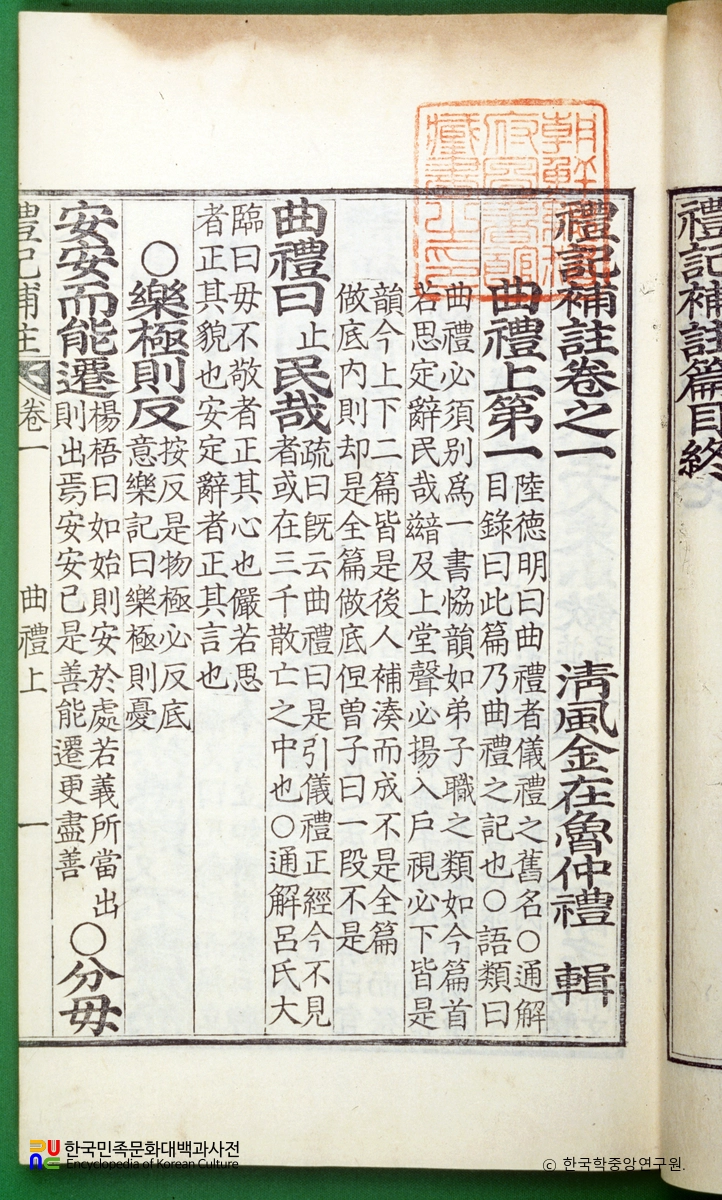 禮記補註篇目終
朝鮮總督
府圖書館
藏書之印
禮記補註卷之一
清風金在魯仲禮 輯
曲禮上第一
陸德明曰曲禮者儀禮之舊名○通解
目錄曰此篇乃曲禮之記也○語類曰
曲禮必須別爲一書恊韻如弟子職之類如今篇首
若思定辭民哉及上堂聲必揚入戶視必下皆是
韻今上下二篇皆是後人補湊而成不是全篇
做底內則却是全篇做底但曾子曰一段不是
曲禮曰止民哉
疏曰旣云曲禮曰是引儀禮正經今不見
者或在三千散亡之中也○通解呂氏大
臨曰毋不敬者正其心也儼若思
者正其貌也安定辭者正其言也
○樂極則反
按反是物極必反底
意樂記曰樂極則憂
安安而能遷
楊梧曰如始則安於處若義所當出
則出焉安安已是善能遷更盡善
○分毋
禮記補註 卷一 曲禮上 一
한국민족문화대백과사전
Encyclopedia of Korean Culture
© 한국학중앙연구원.